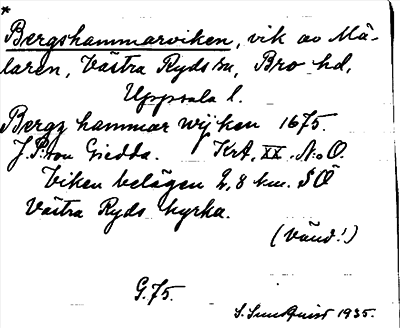 *
Bergshammarviken, vik av Mä-
laren, Västra Ryds sn, Bro hd,
Uppsala l.
Bergz hammar wijken 1675.
J. P. von Giedda. Krt. XX. N:o O.
Viken belägen 2,8 km. SÖ
Västra Ryds kyrka.
(Vänd!)
G. 75.
S. Sundquist 1935.